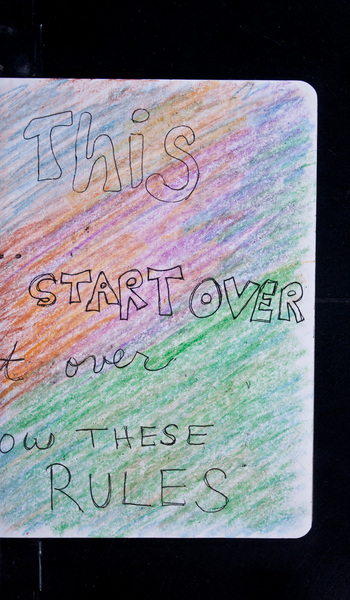 This
..
START OVER
t over
ow THESE
RULES